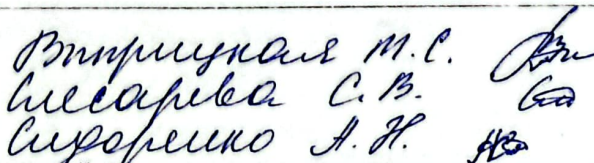 Вытрицкая М.С.
Слесарева С.В.
Сидоренко А.Н.